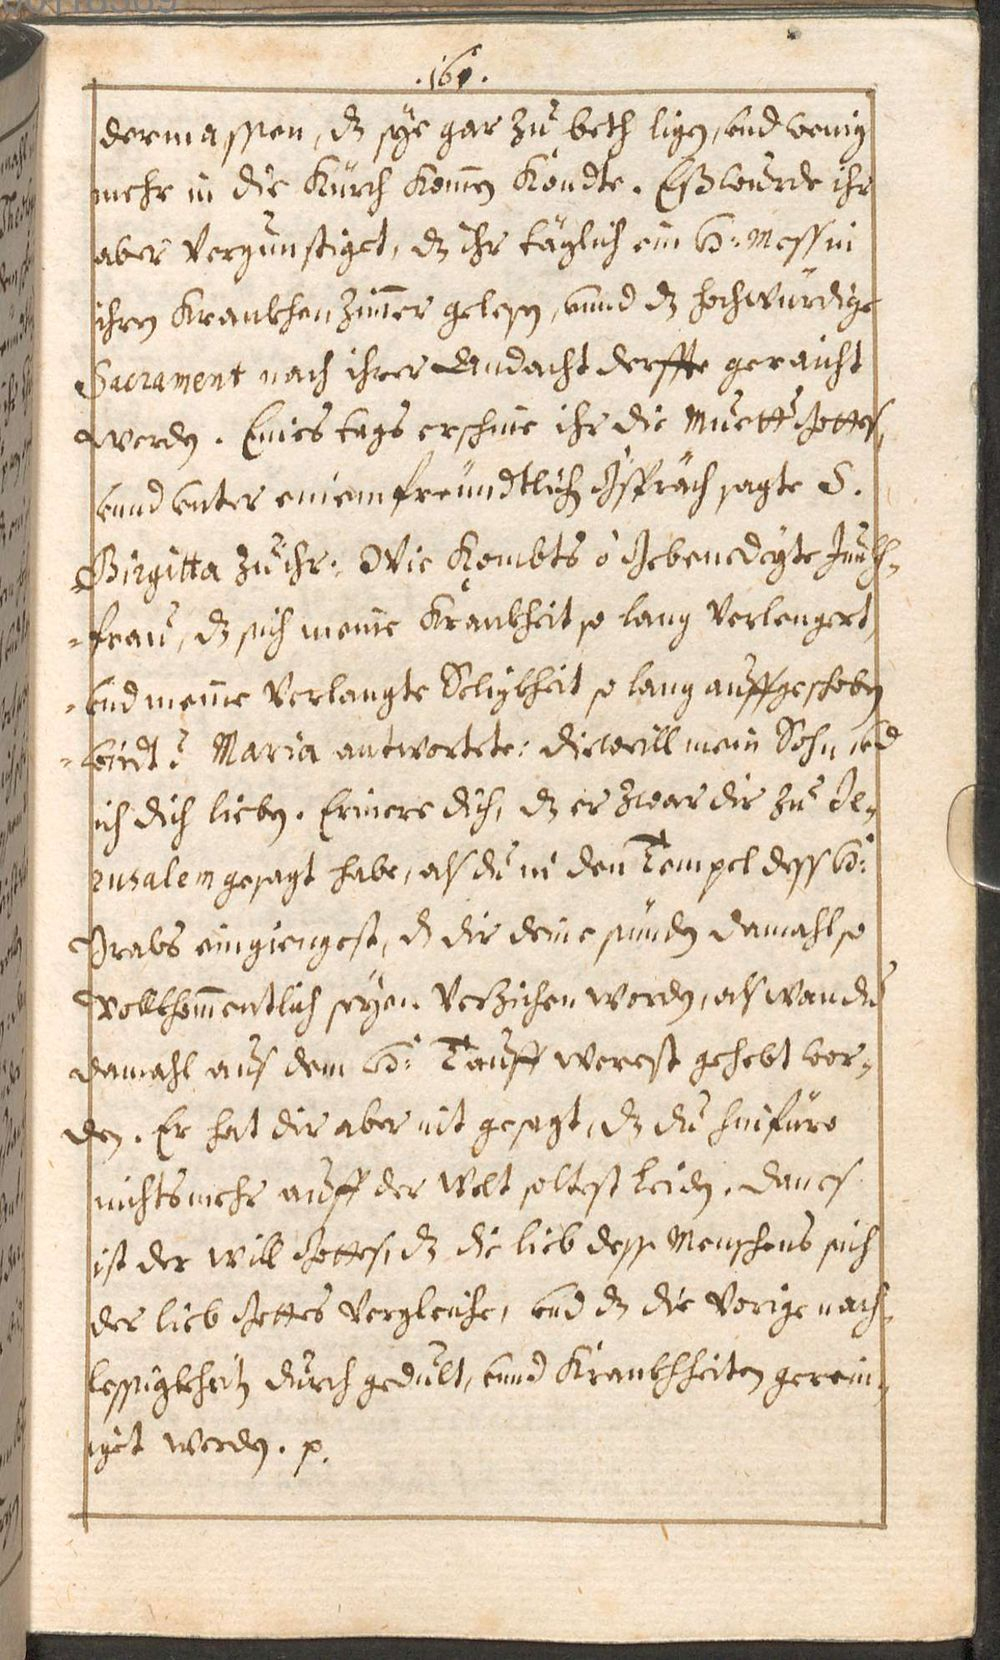 .161.
dermassen, dz sÿe gar zu beth ligen, vnd wenig
mehr in die Kürch kom̄en köndte. Eß wurde ihr
aber vergünstiget, dz ihr täglich ein H: Mess in
ihren Krankhenzim̄er gelesen, vnnd dz hochwürdige
Sacrament nach ihrer Andacht derffte geraicht
werden. Eines tags erschine ihr die Muetter Gottes,
vnnd vnter einem freündtlichen Gspräch sagte S.
Birgitta zu ihr: Wie kombts ô Gebenedeÿte Junkh-
-frau, dz sich meine Krankheit so lang verlengert,
-vnd meine verlangte Seligkheit so lang auffgeschoben
-wirdt? Maria antwortete: dieweill mein Sohn, vnd
ich dich lieben. Erinere dich, dz er zwar dir zu Je-
rusalem gesagt habe, als du in den Tempel dess H:
Grabs eingiengest, dz dir deine sünden damahl so
vollkhom̄entlich seÿen verzichen worden, als wan du
damahl aus dem H: Tauff werest gehebt wor-
den. Er hat dir aber nit gesagt, dz du hinfüro
nichts mehr auff der Welt soltest leiden, dan es
ist der will Gottes, dz die lieb dess Menschens sich
der lieb Gottes vergleiche, vnd dz die vorige nach-
lessigkheiten durch gedult, vnnd Krankhheiten gerein-
iget werden. p.